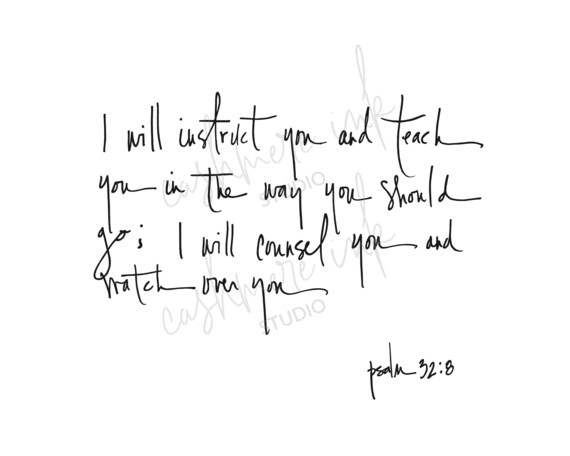 I will instruct you and teach
you in the way you should
go; I will counsel you and
watch over you
psalm 32:8
cashmere ink
STUDIO
cashmere ink
STUDIO